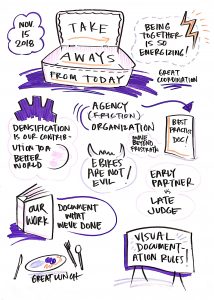 NOV
15
2018
TAKE
AWAYS
FROM TODAY
BEING
TOGETHER
IS SO
ENERGIZING!
GREAT
COORDINATION
AGENCY
(FRICTION)
ORGANIZATION
MOVE
BEYOND
BEST
PRACTICE
DOC!
DENSIFICATION
IS OUR CONTRIB-
UTION TO A
BETTER
WORLD
E BIKES
ARE NOT
EVIL!
EARLY
PARTNER
VS
LATE
JUDGE
OUR
WORK
DOCUMENT
WHAT
WE'VE DONE
GREAT LUNCH
VISUAL
DOCUMENT-
ATION RULES!